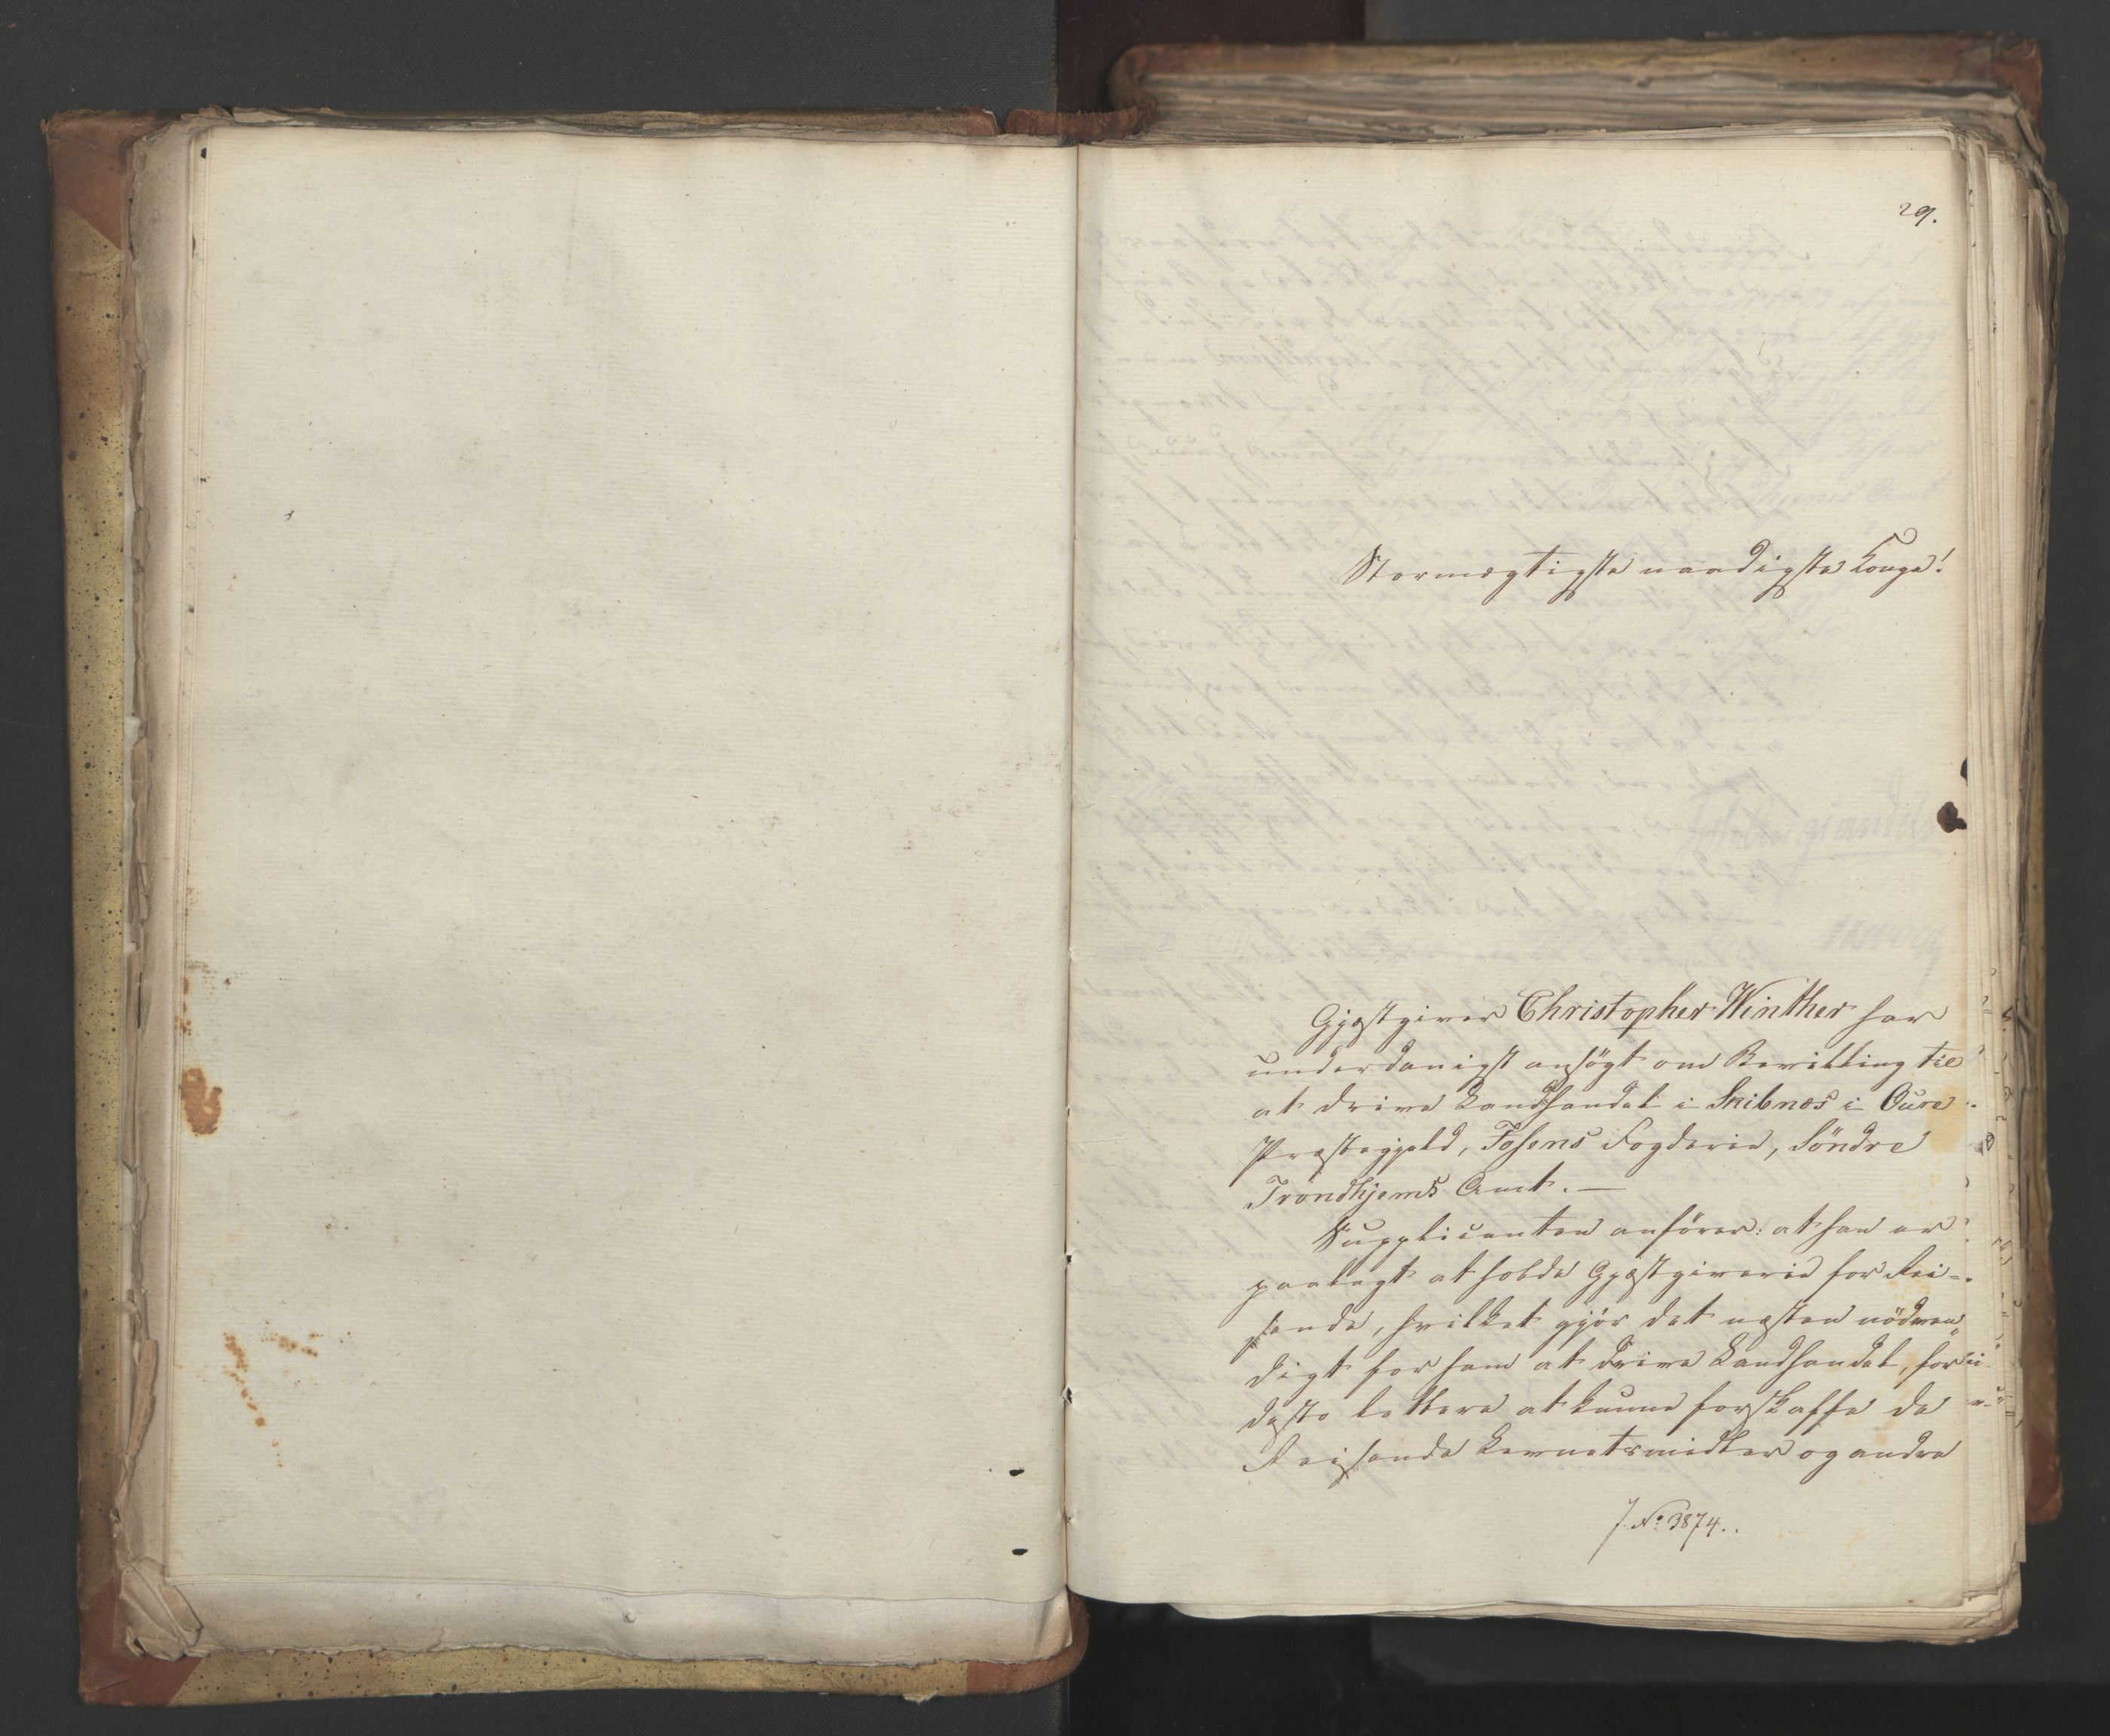 29.
Stormægtigste naadigste Konge!
Gjæstgiver Christopher Winther har
underdanigst ansøgt om Bevilling til
at drive Landhandel i Skibnæs i Oure
Præstegjæld, Fosens Fogderie, Söndre
Trondhjems Amt. —
Supplicanten anförer: at han er
paalagt at holde Gjæstgiverie for Rei-
sende, hvilket gjör det næsten nödven„
digt for ham at drive Landhandel, for
desto lettere at kunne forskaffe de
Reisende Levnetsmidler og andre
J. No 3874.